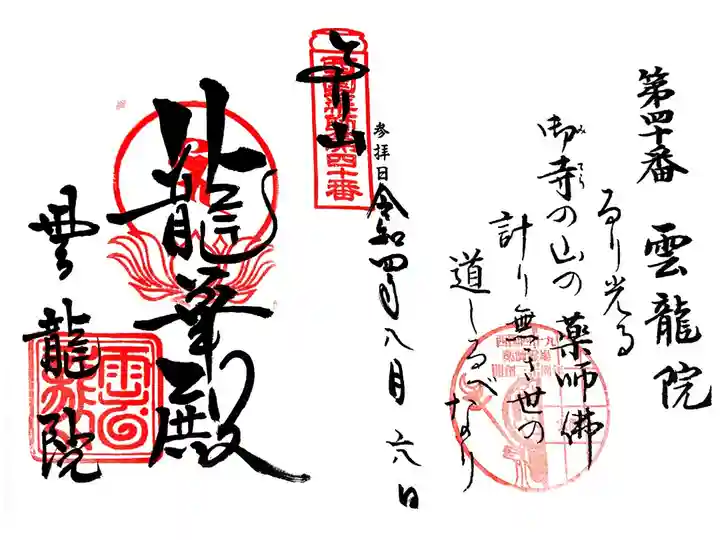 第四十番 雲龍院
るり光る
御寺の山の薬師佛
みてら
計り無き世の
道しるべなり
参拝日
令和四年八月六日
第四十番
龍華殿
雲龍院